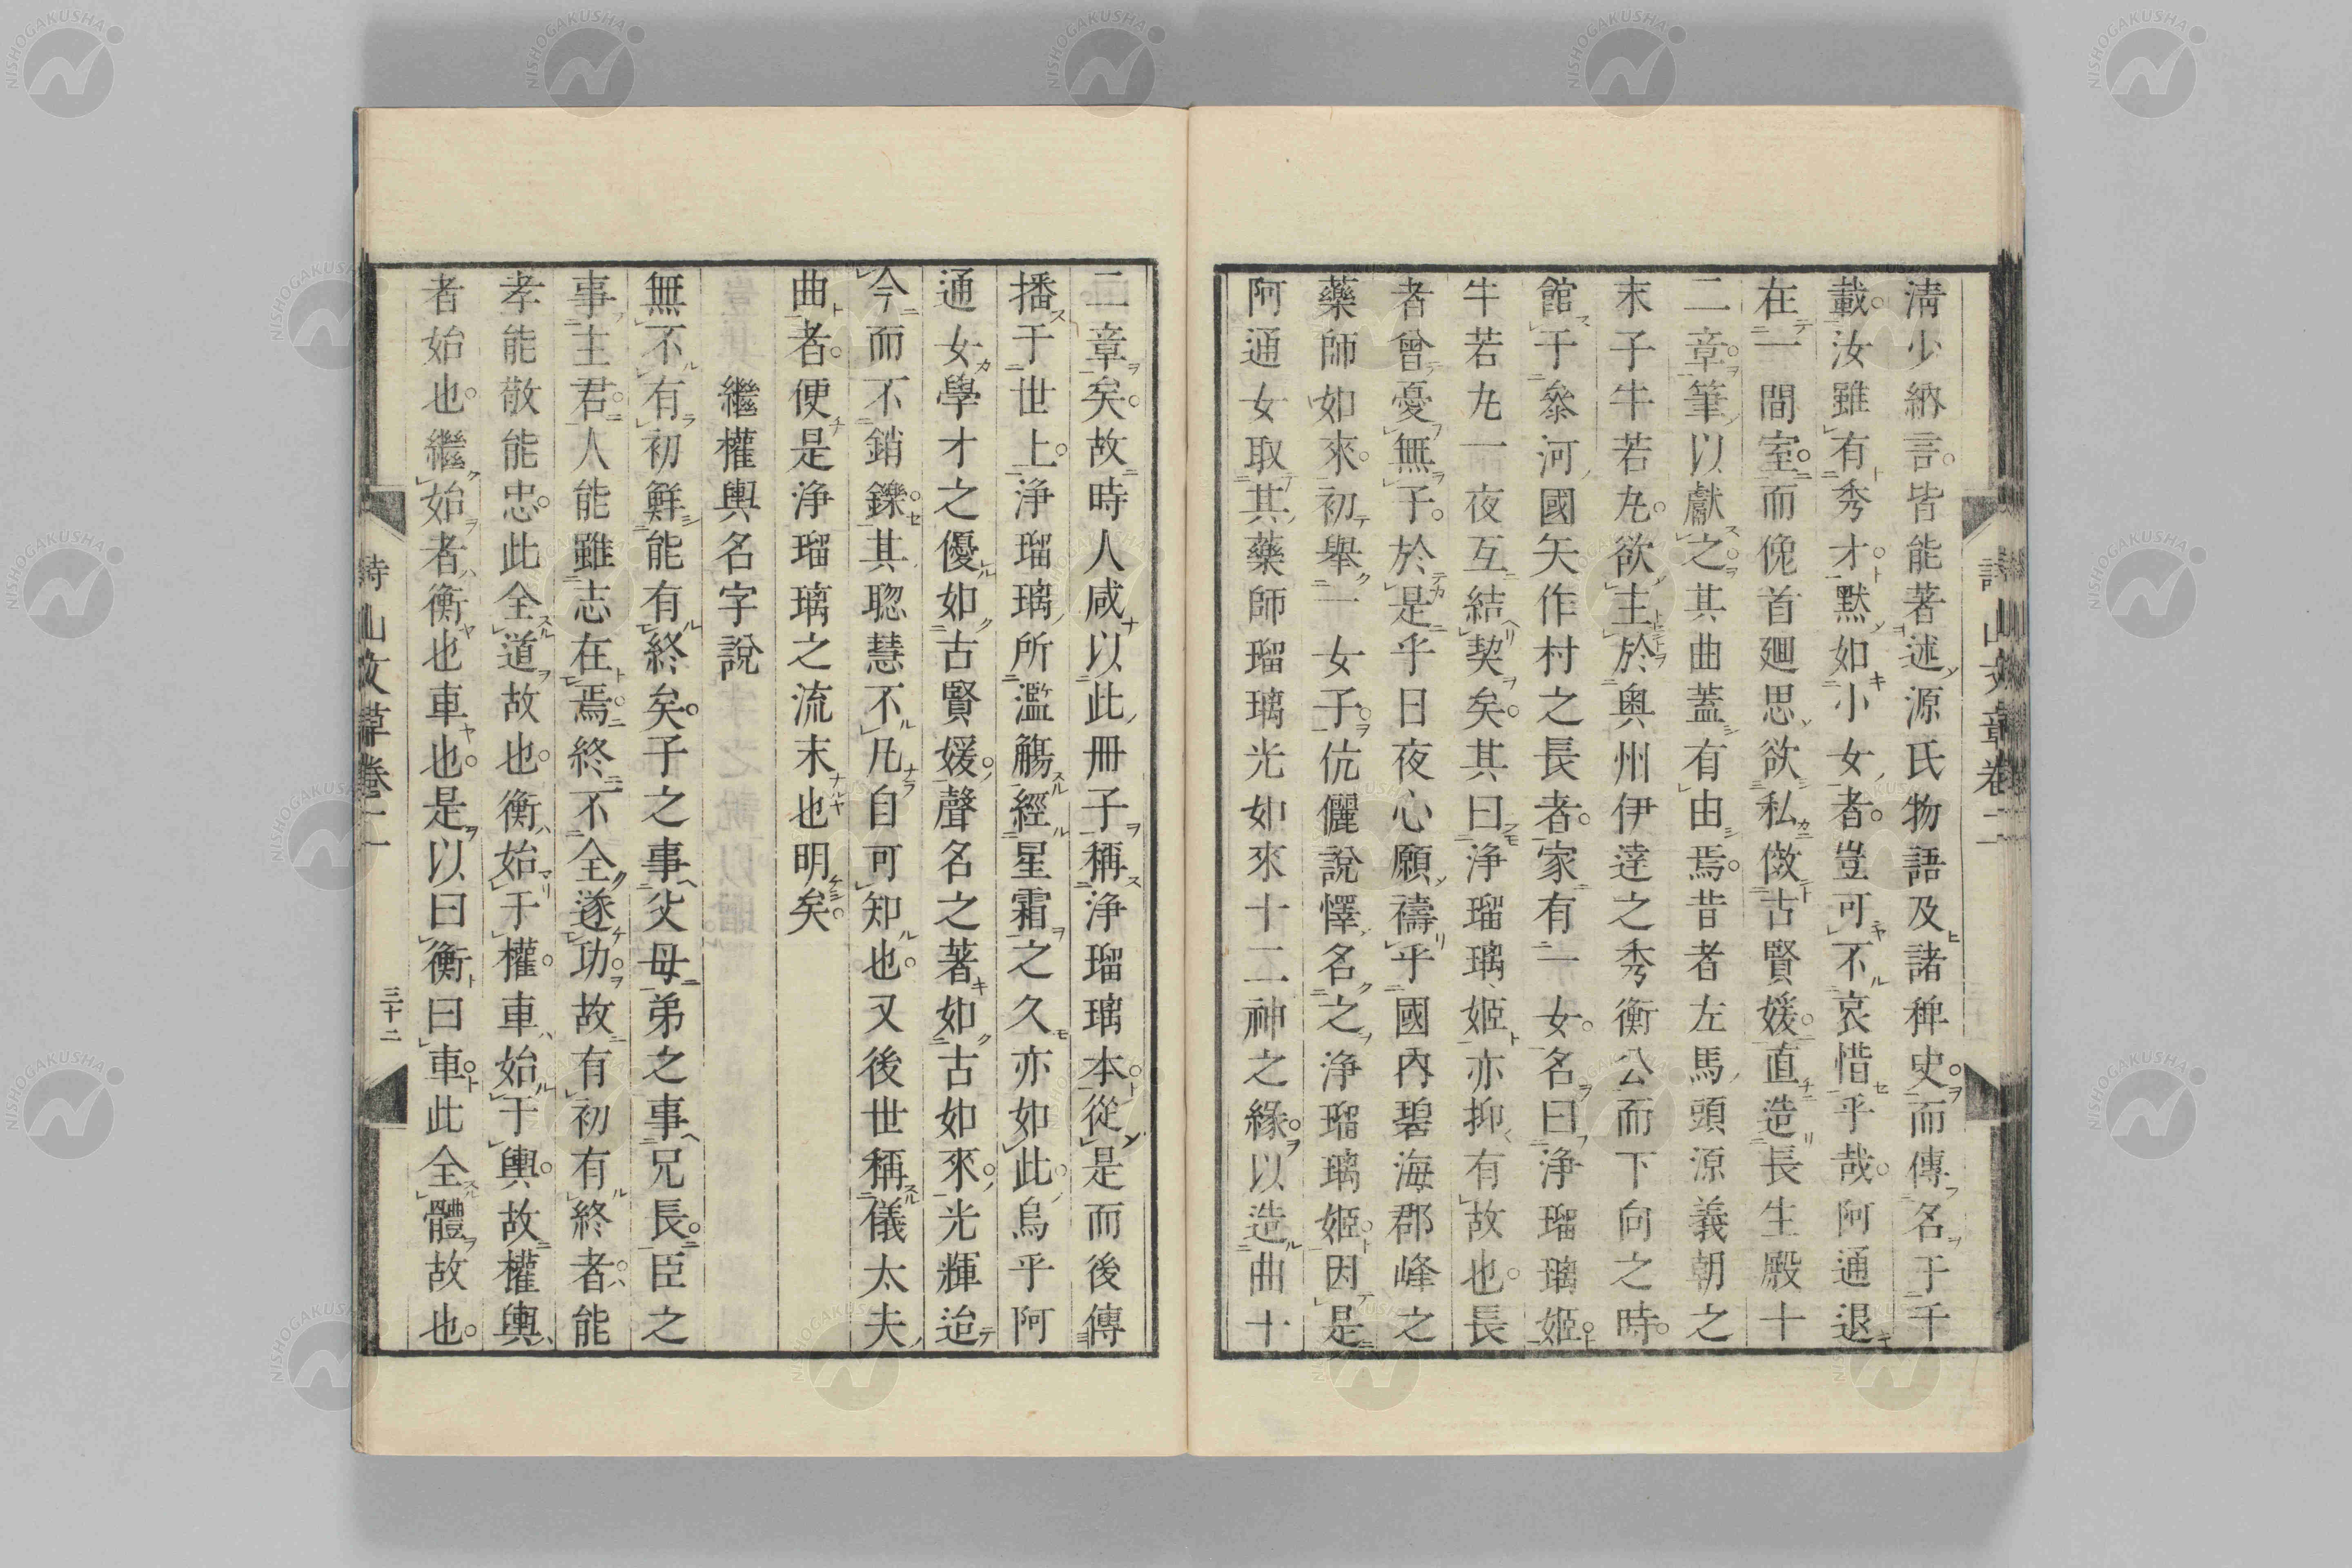 清少納言皆能著述源氏物語及諸稗史而傳名于千
載汝雖有秀才默如小女者豈可不哀惜乎哉阿通退
在一間室而俛首廻思欲私傚古賢媛直造長生殿十
二章筆以獻之其曲蓋有由焉昔者左馬頭源義朝之
末子牛若丸欲主於奧州伊達之秀衡公而下向之時
館于叅河國矢作村之長者家有一女名曰浄瑠璃姬
牛若丸一夜互結契矣其曰浄瑠璃姬亦抑有故也長
者曾憂無子於是乎日夜心願禱乎國內碧海郡峰之
藥師如來初舉一女子伉儷說懌名之浄瑠璃姬因是
阿通女取其藥師瑠璃光如來十二神之緣以造曲十
二章矣故時人咸以此冊子稱浄瑠璃本從是而後傳
播于世上浄瑠璃所濫觴經星霜之久亦如此烏乎阿
通女學才之優如古賢媛聲名之著如古如來光輝迨
今而不銷鑠其聰慧不凡自可知也又後世稱儀太夫
曲者便是浄瑠璃之流末也明矣
繼權輿名字說
無不有初鮮能有終矣子之事父母弟之事兄長臣之
事主君人能雖志在焉終不全遂功故有初有終者能
孝能敬能忠此全道故也衡始于權車始于輿故權輿
者始也繼始者衡也車也是以曰衡曰車此全體故也
詩山文草卷二
三十二
NISHOGAKUSHA